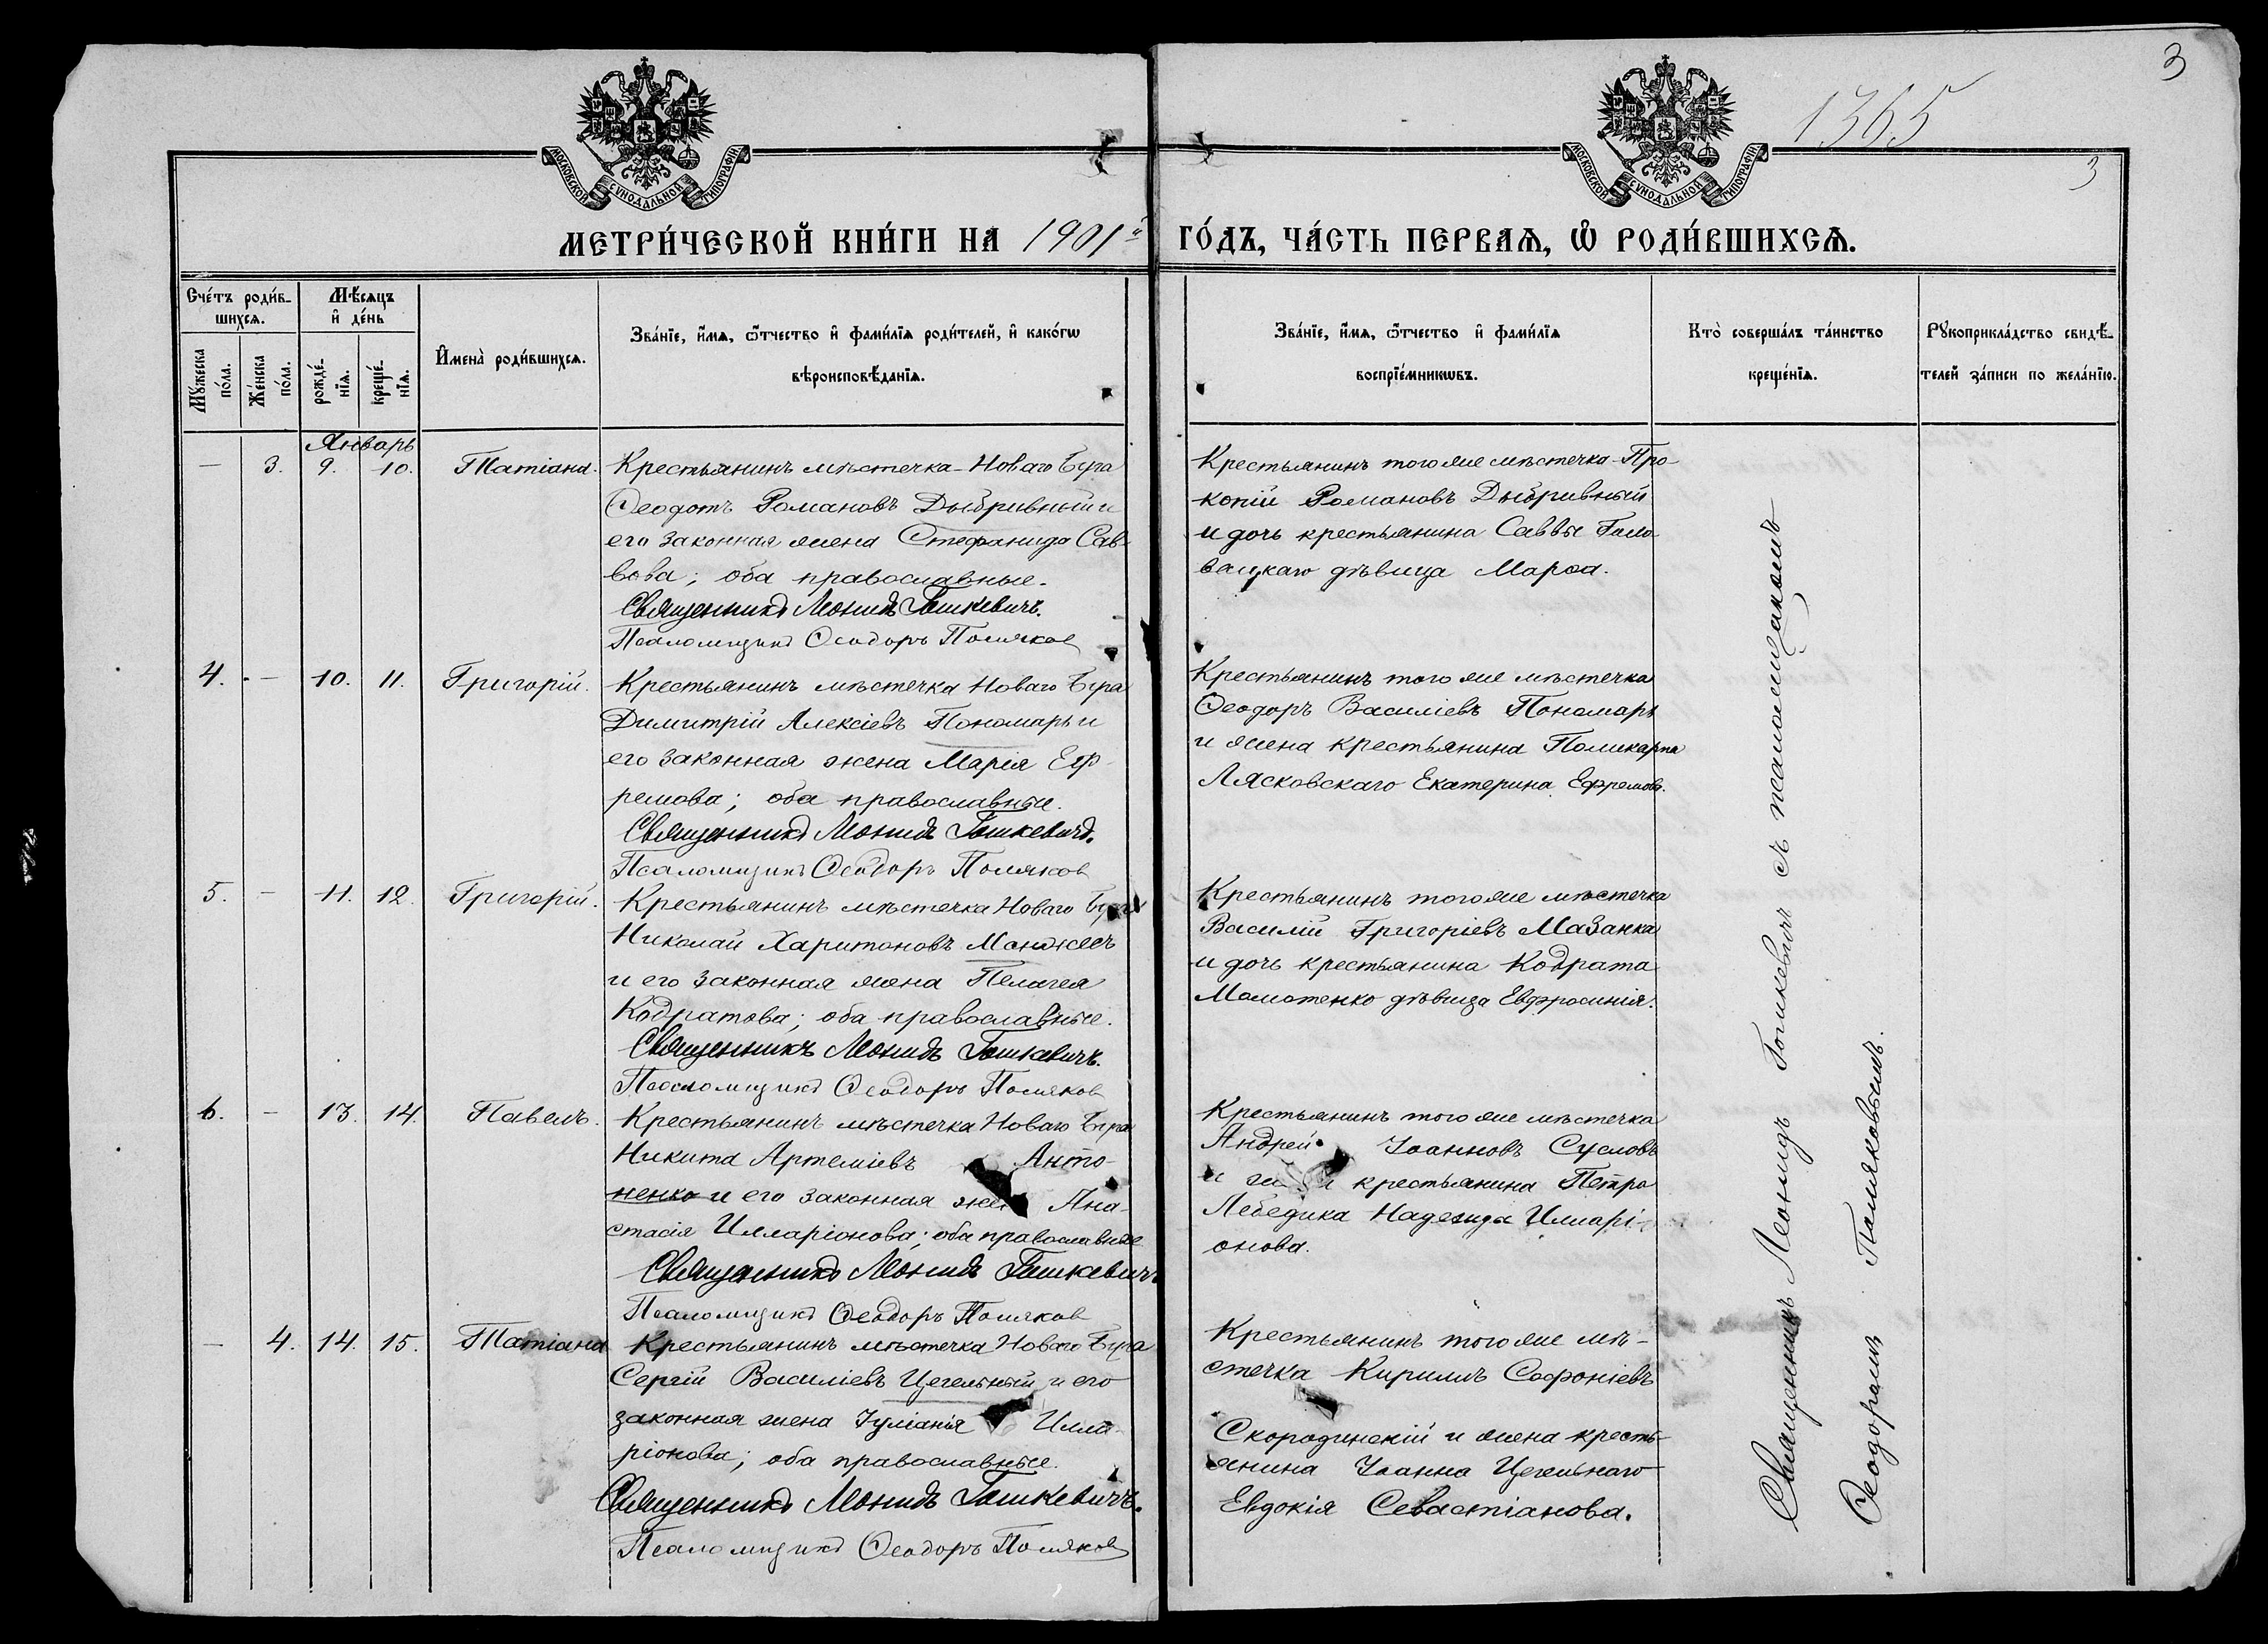 3
1365
3
МОСКОВСКОЙ СѴНОДАЛЬНОЙ ТИПОГРАФІИ
МОСКОВСКОЙ СѴНОДАЛЬНОЙ ТИПОГРАФІИ
МЕТРИ́ЧЕСКОЙ КНИ́ГИ НА 1901й ГО́ДЪ, ЧА́СТЬ ПЕРВАѦ, Ѽ РОДИ́ВШИХСѦ.
Сче́тъ роди́в-
шихсѧ.
Мꙋжеска по́ла.
Же́нска по́ла.
Мѣ́сѧцъ
и҆ де́нь
рожде́-
нїѧ.
креще́-
нїѧ.
И҆мена̀ роди́вшихсѧ.
Зва́нїе, и҆́мѧ, ѻ҆́тчество и҆ фами́лїѧ роди́телей, и҆ како́гѡ
вѣроисповѣ́данїѧ.
Зва́нїе, и҆́мѧ, ѻ҆́тчество и҆ фами́лїѧ
воспрїе́мникѡвъ.
Кто̀ соверша́лъ та́инство
креще́нїѧ.
Рꙋкоприкла́дство свидѣ́-
телей за́писи по жела́нїю.
Январь
— 3. 9. 10. Татіана.
Крестьянинъ мѣстечка Новаго Буга
Ѳеодотъ Романовъ Дыбривный и
его законная жена Стефанида Сав-
вова; оба православные.
Священникъ Леонидъ Гошкевичъ.
Псаломщикъ Ѳеодоръ Поляков
Крестьянинъ того же мѣстечка Про-
копій Романовъ Дыбривный
и дочь крестьянина Саввы Голо-
вацкаго дѣвица Марѳа.
4. — 10. 11. Григорій.
Крестьянинъ мѣстечка Новаго Буга
Димитрій Алексіевъ Пономарь и
его законная жена Марія Еф-
ремова; оба православные.
Священникъ Леонидъ Гошкевичъ.
Псаломщикъ Ѳеодоръ Поляков
Крестьянинъ того же мѣстечка
Ѳеодоръ Василіевъ Пономарь
и жена крестьянина Поликарпа
Лясковскаго Екатерина Ефремова.
5. — 11. 12. Григорій.
Крестьянинъ мѣстечка Новаго Буга
Николай Харитоновъ
и его законная жена Пелагея
Кодратова; оба православные.
Священникъ Леонидъ Гошкевичъ.
Псаломщикъ Ѳеодоръ Поляков
Крестьянинъ того же мѣстечка
Василій Григоріевъ Мазанка
и дочь крестьянина Кодрата
дѣвица Евфросинія.
6. — 13. 14. Павелъ.
Крестьянинъ мѣстечка Новаго Буга
Никита Артеміевъ Анто-
ненко и его законная жена Ана-
стасія Илларіонова; оба православные
Священникъ Леонидъ Гошкевичъ
Псаломщикъ Ѳеодоръ Поляков
Крестьянинъ того же мѣстечка
Андрей Іоанновъ Сусловъ
и крестьянина Петра
Лебедика Надежда Илларі-
онова.
— 4. 14. 15. Татіана
Крестьянинъ мѣстечка Новаго Буга
Сергій Василіевъ Цегельный и его
законная жена Іуліанія Илла-
ріонова; оба православные.
Священникъ Леонидъ Гошкевичъ.
Псаломщикъ Ѳеодоръ Поляков
Крестьянинъ того же мѣ-
стечка Кириллъ Софоніевъ
Скородинскій и жена кресть-
янина Іоанна Цегельнаго
Евдокія Севастіанова.
Священникъ Леонидъ Гошкевичъ съ псаломщикомъ
Ѳеодоромъ Поляковымъ.